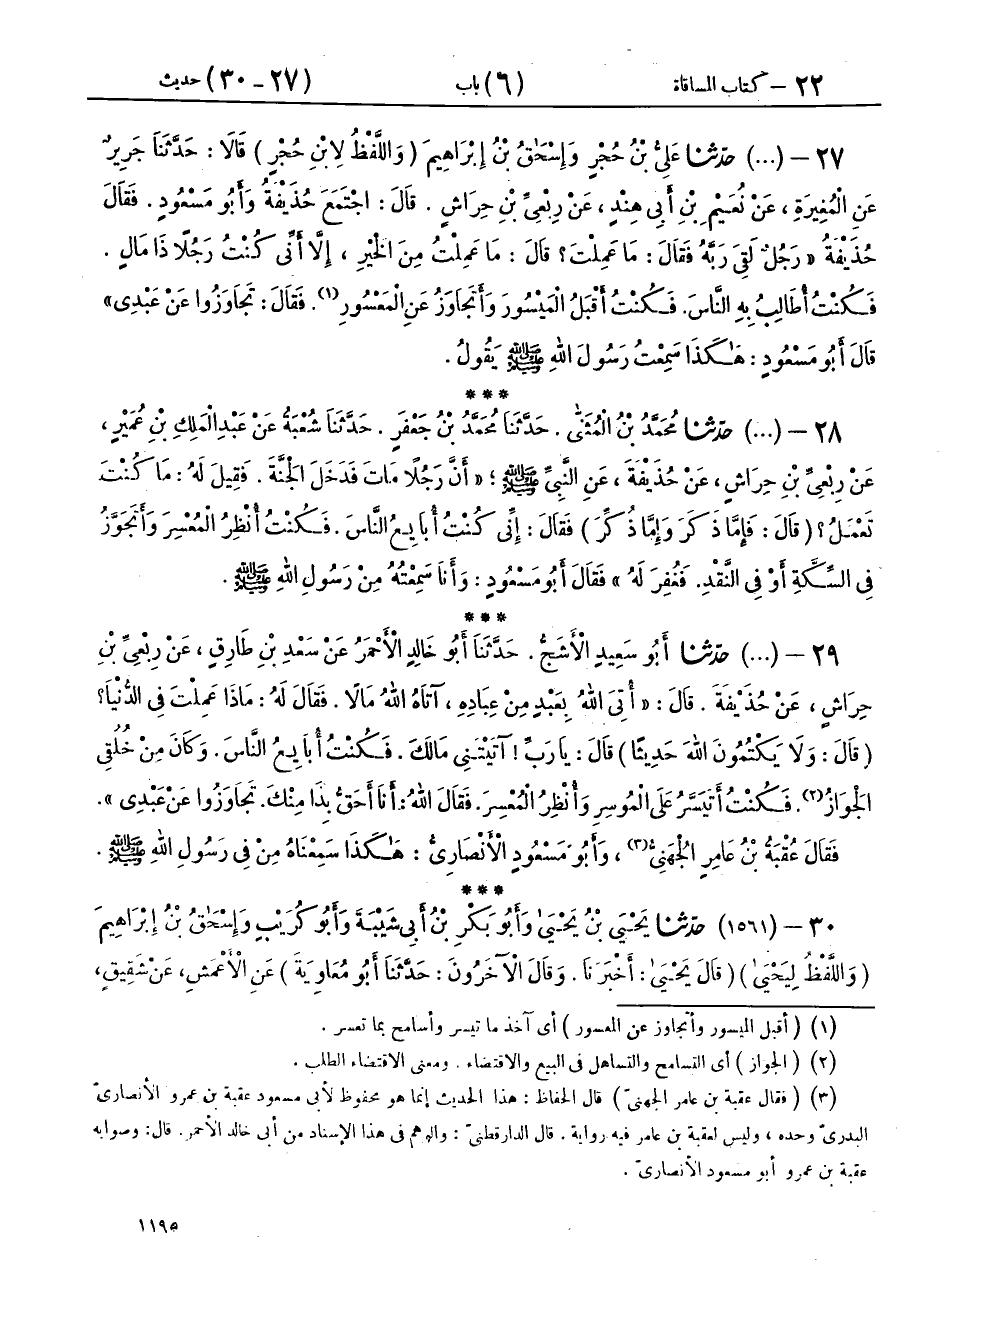 ٢٢ – كتاب المساقاة (٦) باب (٢٧ – ٣٠) حديث
٢٧ – (...) حدّثنا عَلِىُّ بْنُ حُجْرٍ وَإِسْحَاقُ بْنُ إِبْرَاهِيمَ ( وَاللَّفْظُ لِابْنِ حُجْرٍ ) قَالَا : حَدَّثَنَا جَرِيرٌ
عَنِ الْمُغِيرَةِ ، عَنْ نُعَيْمِ بْنِ أَبِى هِنْدٍ ، عَنْ رِبْعِىِّ بْنِ حِرَاشٍ . قَالَ : اجْتَمَعَ حُذَيْفَةُ وَأَبُو مَسْعُودٍ . فَقَالَ
حُذَيْفَةُ « رَجُلٌ لَقِىَ رَبَّهُ فَقَالَ : مَا عَمِلْتَ ؟ قَالَ : مَا عَمِلْتُ مِنَ الْخَيْرِ ، إِلَّا أَنِّى كُنْتُ رَجُلًا ذَا مَالٍ .
فَكُنْتُ أُطَالِبُ بِهِ النَّاسَ. فَكُنْتُ أَقْبَلُ الْمَيْسُورَ وَأَتَجَاوَزُ عَنِ الْمَعْسُورِ (١). فَقَالَ : تَجَاوَزُوا عَنْ عَبْدِى»
قَالَ أَبُو مَسْعُودٍ : هَٰكَذَا سَمِعْتُ رَسُولَ اللهِ ﷺ يَقُولُ .
***
٢٨ – (...) حدّثنا مُحَمَّدُ بْنُ الْمُثَنَّى . حَدَّثَنَا مُحَمَّدُ بْنُ جَعْفَرٍ . حَدَّثَنَا شُعْبَةُ عَنْ عَبْدِ الْمَلِكِ بْنِ عُمَيْرٍ ،
عَنْ رِبْعِىِّ بْنِ حِرَاشٍ ، عَنْ حُذَيْفَةَ ، عَنِ النَّبِىِّ ﷺ ؛ « أَنَّ رَجُلًا مَاتَ فَدَخَلَ الْجَنَّةَ . فَقِيلَ لَهُ : مَا كُنْتَ
تَعْمَلُ ؟ ( قَالَ : فَإِمَّا ذَكَرَ وَإِمَّا ذُكِّرَ ) فَقَالَ : إِنِّى كُنْتُ أُبَايِعُ النَّاسَ . فَكُنْتُ أُنْظِرُ الْمُعْسِرَ وَأَتَجَوَّزُ
فِى السِّكَّةِ أَوْ فِى النَّقْدِ. فَغُفِرَ لَهُ » فَقَالَ أَبُو مَسْعُودٍ : وَأَنَا سَمِعْتُهُ مِنْ رَسُولِ اللهِ ﷺ .
***
٢٩ – (...) حدّثنا أَبُو سَعِيدٍ الْأَشَجُّ . حَدَّثَنَا أَبُو خَالِدٍ الْأَحْمَرُ عَنْ سَعْدِ بْنِ طَارِقٍ ، عَنْ رِبْعِىِّ بْنِ
حِرَاشٍ ، عَنْ حُذَيْفَةَ . قَالَ : « أُتِىَ اللهُ بِعَبْدٍ مِنْ عِبَادِهِ ، آتَاهُ اللهُ مَالًا . فَقَالَ لَهُ : مَاذَا عَمِلْتَ فِى الدُّنْيَا ؟
( قَالَ : وَلَا يَكْتُمُونَ اللهَ حَدِيثًا ) قَالَ : يَارَبِّ ! آتَيْتَنِى مَالَكَ . فَكُنْتُ أُبَايِعُ النَّاسَ . وَكَانَ مِنْ خُلُقِى
الْجَوَازُ (٢). فَكُنْتُ أَتَيَسَّرُ عَلَى الْمُوسِرِ وَأُنْظِرُ الْمُعْسِرَ. فَقَالَ اللهُ : أَنَا أَحَقُّ بِذَا مِنْكَ. تَجَاوَزُوا عَنْ عَبْدِى ».
فَقَالَ عُقْبَةُ بْنُ عَامِرٍ الْجُهَنِىُّ (٣) ، وَأَبُو مَسْعُودٍ الْأَنْصَارِىُّ : هَٰكَذَا سَمِعْنَاهُ مِنْ فِى رَسُولِ اللهِ ﷺ .
***
٣٠ – (١٥٦١) حدّثنا يَحْيَىٰ بْنُ يَحْيَىٰ وَأَبُو بَكْرِ بْنُ أَبِى شَيْبَةَ وَأَبُو كُرَيْبٍ وَإِسْحَاقُ بْنُ إِبْرَاهِيمَ
( وَاللَّفْظُ لِيَحْيَىٰ ) ( قَالَ يَحْيَىٰ : أَخْبَرَنَا . وَقَالَ الْآخَرُونَ : حَدَّثَنَا أَبُو مُعَاوِيَةَ ) عَنِ الْأَعْمَشِ، عَنْ شَقِيقٍ،
(١) ( أقبل الميسور وأتجاوز عن المعسور ) أى آخذ ما تيسر وأسامح بما تعسر .
(٢) ( الجواز ) أى التسامح والتساهل فى البيع والاقتضاء . ومعنى الاقتضاء الطلب .
(٣) ( فقال عقبة بن عامر الجهنىّ ) قال الحفاظ : هذا الحديث إنما هو محفوظ لأبى مسعود عقبة بن عمرو الأنصارىّ
البدرىّ وحده ، وليس لعقبة بن عامر فيه رواية . قال الدارقطنىّ : والوهم فى هذا الإسناد من أبى خالد الأحمر. قال: وصوابه
عقبة بن عمرو أبو مسعود الأنصارىّ .
١١٩٥